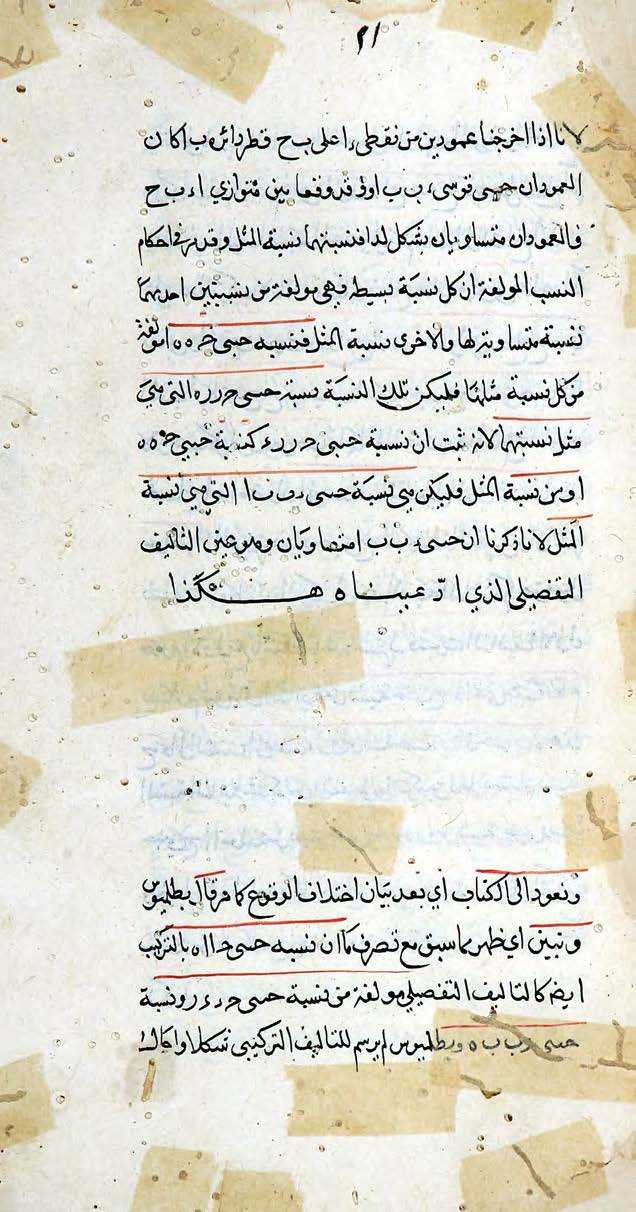 ٢١
لانا اذا اخرجنا عمودين من نقطتي ء ا على ب ح قطر دائرة ب ا كان
العمودان جيبي قوسي ء ب ب ا وقد وقعا بين متوازي ا ء ب ح
فالعمودان متساويان بشكل لد فنسبتهما نسبة المثل وقد مر في احكام
النسب المولفة ان كل نسبة بسيطة فهي مولفة من نسبتين احديهما
نسبة متساوية لها والاخرى نسبة المثل فنسبة جيبي ح ه ه ا مولفة
من كل نسبة مثلها فليكن تلك النسبة نسبة جيبي ح ر ر ء التي هي
مثل نسبتهما لانه ثبت ان نسبة جيبي ح ر ر ء كنسبة جيبي ح ه ه
ا ومن نسبة المثل فليكن هي نسبة جيبي ء ب ب ا التي هي نسبة
المثل لانا ذكرنا ان جيبي ء ب ب ا متساويان وهو عين التاليف
التفصيلي الذي ادعيناه هكذا
ونعود الى الكتاب اي بعد بيان اختلاف الوقوع كما مر قال بطلميوس
وتبين اي ظهر مما سبق مع تصرف ما ان نسبة جيبي ح ا ا ه بالتركيب
ايضا كالتاليف التفصيلي مولفة من نسبة جيبي ح ء ء ر ونسبة
جيبي ر ب ب ه وبطلميوس لم يرسم للتاليف التركيبي شكلا واحال